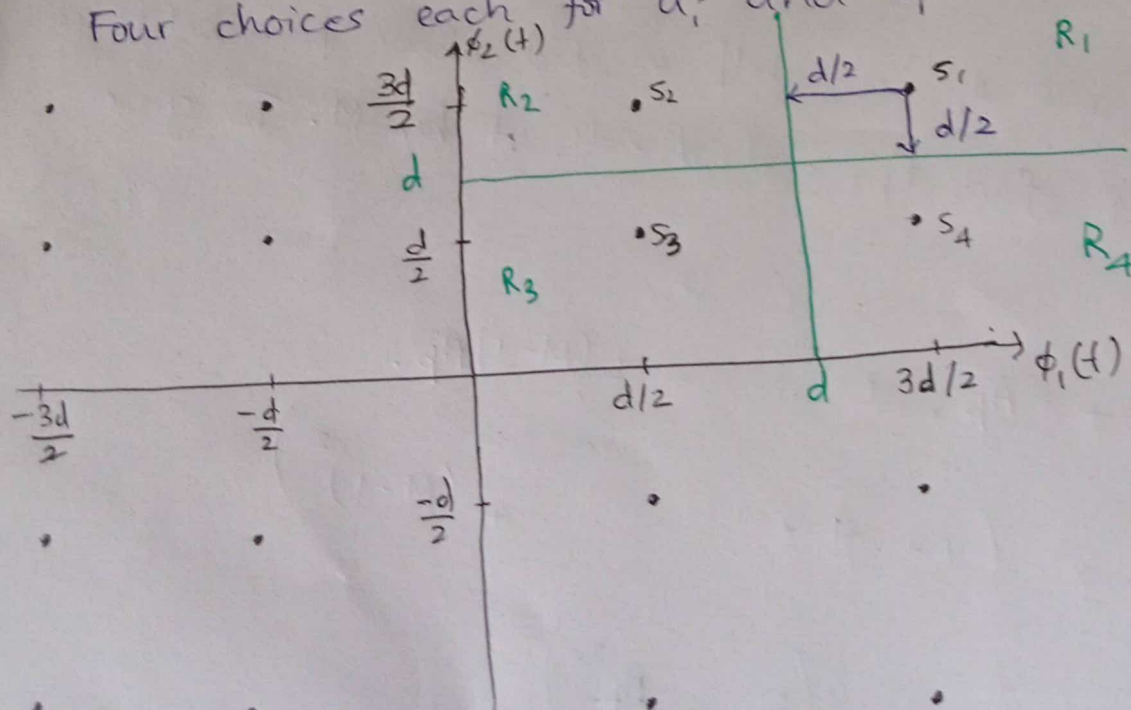 Four choices each for a
φ₂(t)
R₁
3d/2
R₂
S₂
d/2
S₁
d/2
d
d/2
S₃
S₄
R₃
R₄
-3d/2
-d/2
d/2
d
3d/2
φ₁(t)
-d/2